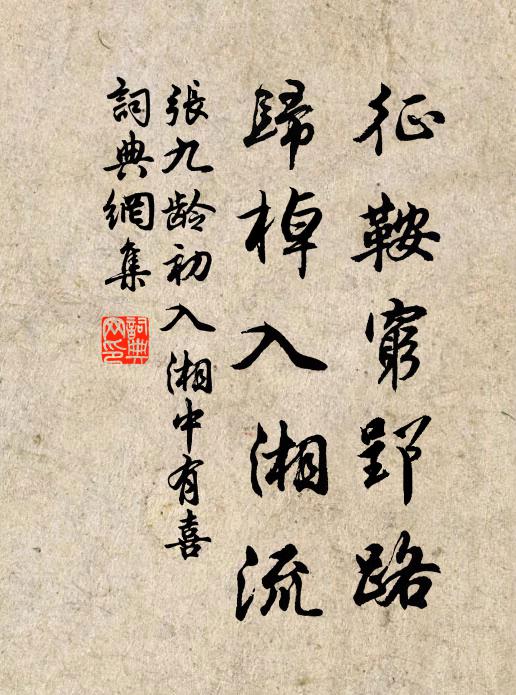 征鞍穷郢路
歸棹入湘流
張九龄初入湘中有喜
詞典網集
詞典网印